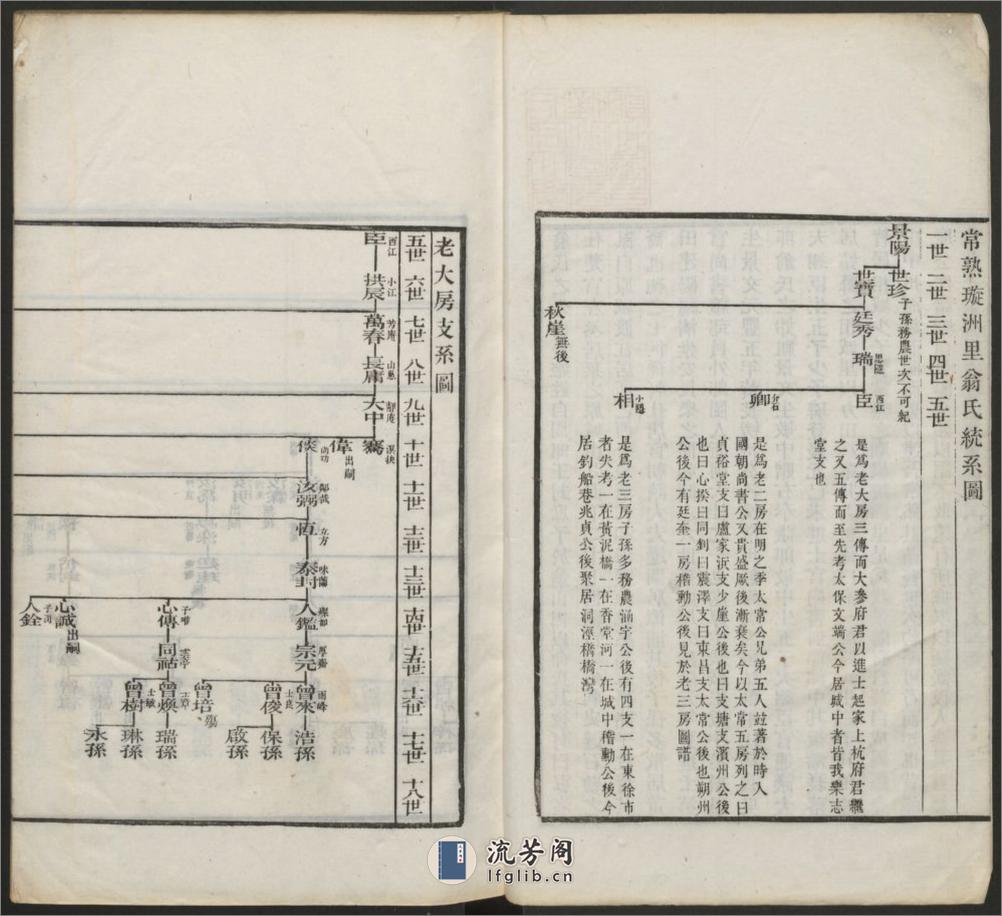 常熟璇洲里翁氏統系圖
一世 二世 三世 四世 五世
景陽
世珍 子孫務農世次不可紀
世寶 廷秀 瑞 思隱 臣 西江
是爲老大房三傳而大參府君以進士起家上杭府君繼
之又五傳而至先考太保文端公今居城中者皆我樂志
堂支也
卿 介石
是爲老二房在明之季太常公兄弟五人竝著於時入
國朝尚書公又貴盛厥後漸衰矣今以太常五房列之曰
貞裕堂支曰盧家浜支少崖公後也曰支塘支濱州公後
也曰心揆曰同釗曰震澤支曰東昌支太常公後也朔州
公後今有廷奎一房稽勳公後見於老三房圖譜
相 小隱
是爲老三房子孫多務農涵宇公後有四支一在東徐市
者失考一在黃泥橋一在香堂河一在城中稽勳公後今
居釣船巷兆貞公後聚居洞涇橋橋灣
秋崖 無後
老大房支系圖
五世 六世 七世 八世 九世 十世 十一世 十二世 十三世 十四世 十五世 十六世 十七世 十八世
臣 西江 拱辰 小江 萬春 芳庵 長庸 山愚 大中 靜庵 騫 漠扶
偉 出嗣
倓 尚功 汝弼 鄰哉 恆 立方 泰封 味蘭 人鑑 宗元 厚齋 曾來 雨峰 浩孫
曾俊 士良 保孫
啟孫
曾培 殤
心傳 子唯 同祜 曾煥 士章 瑞孫
曾樹 士敏 琳孫
永孫
心誠 出嗣
人銓
流芳阁
lfglib.cn